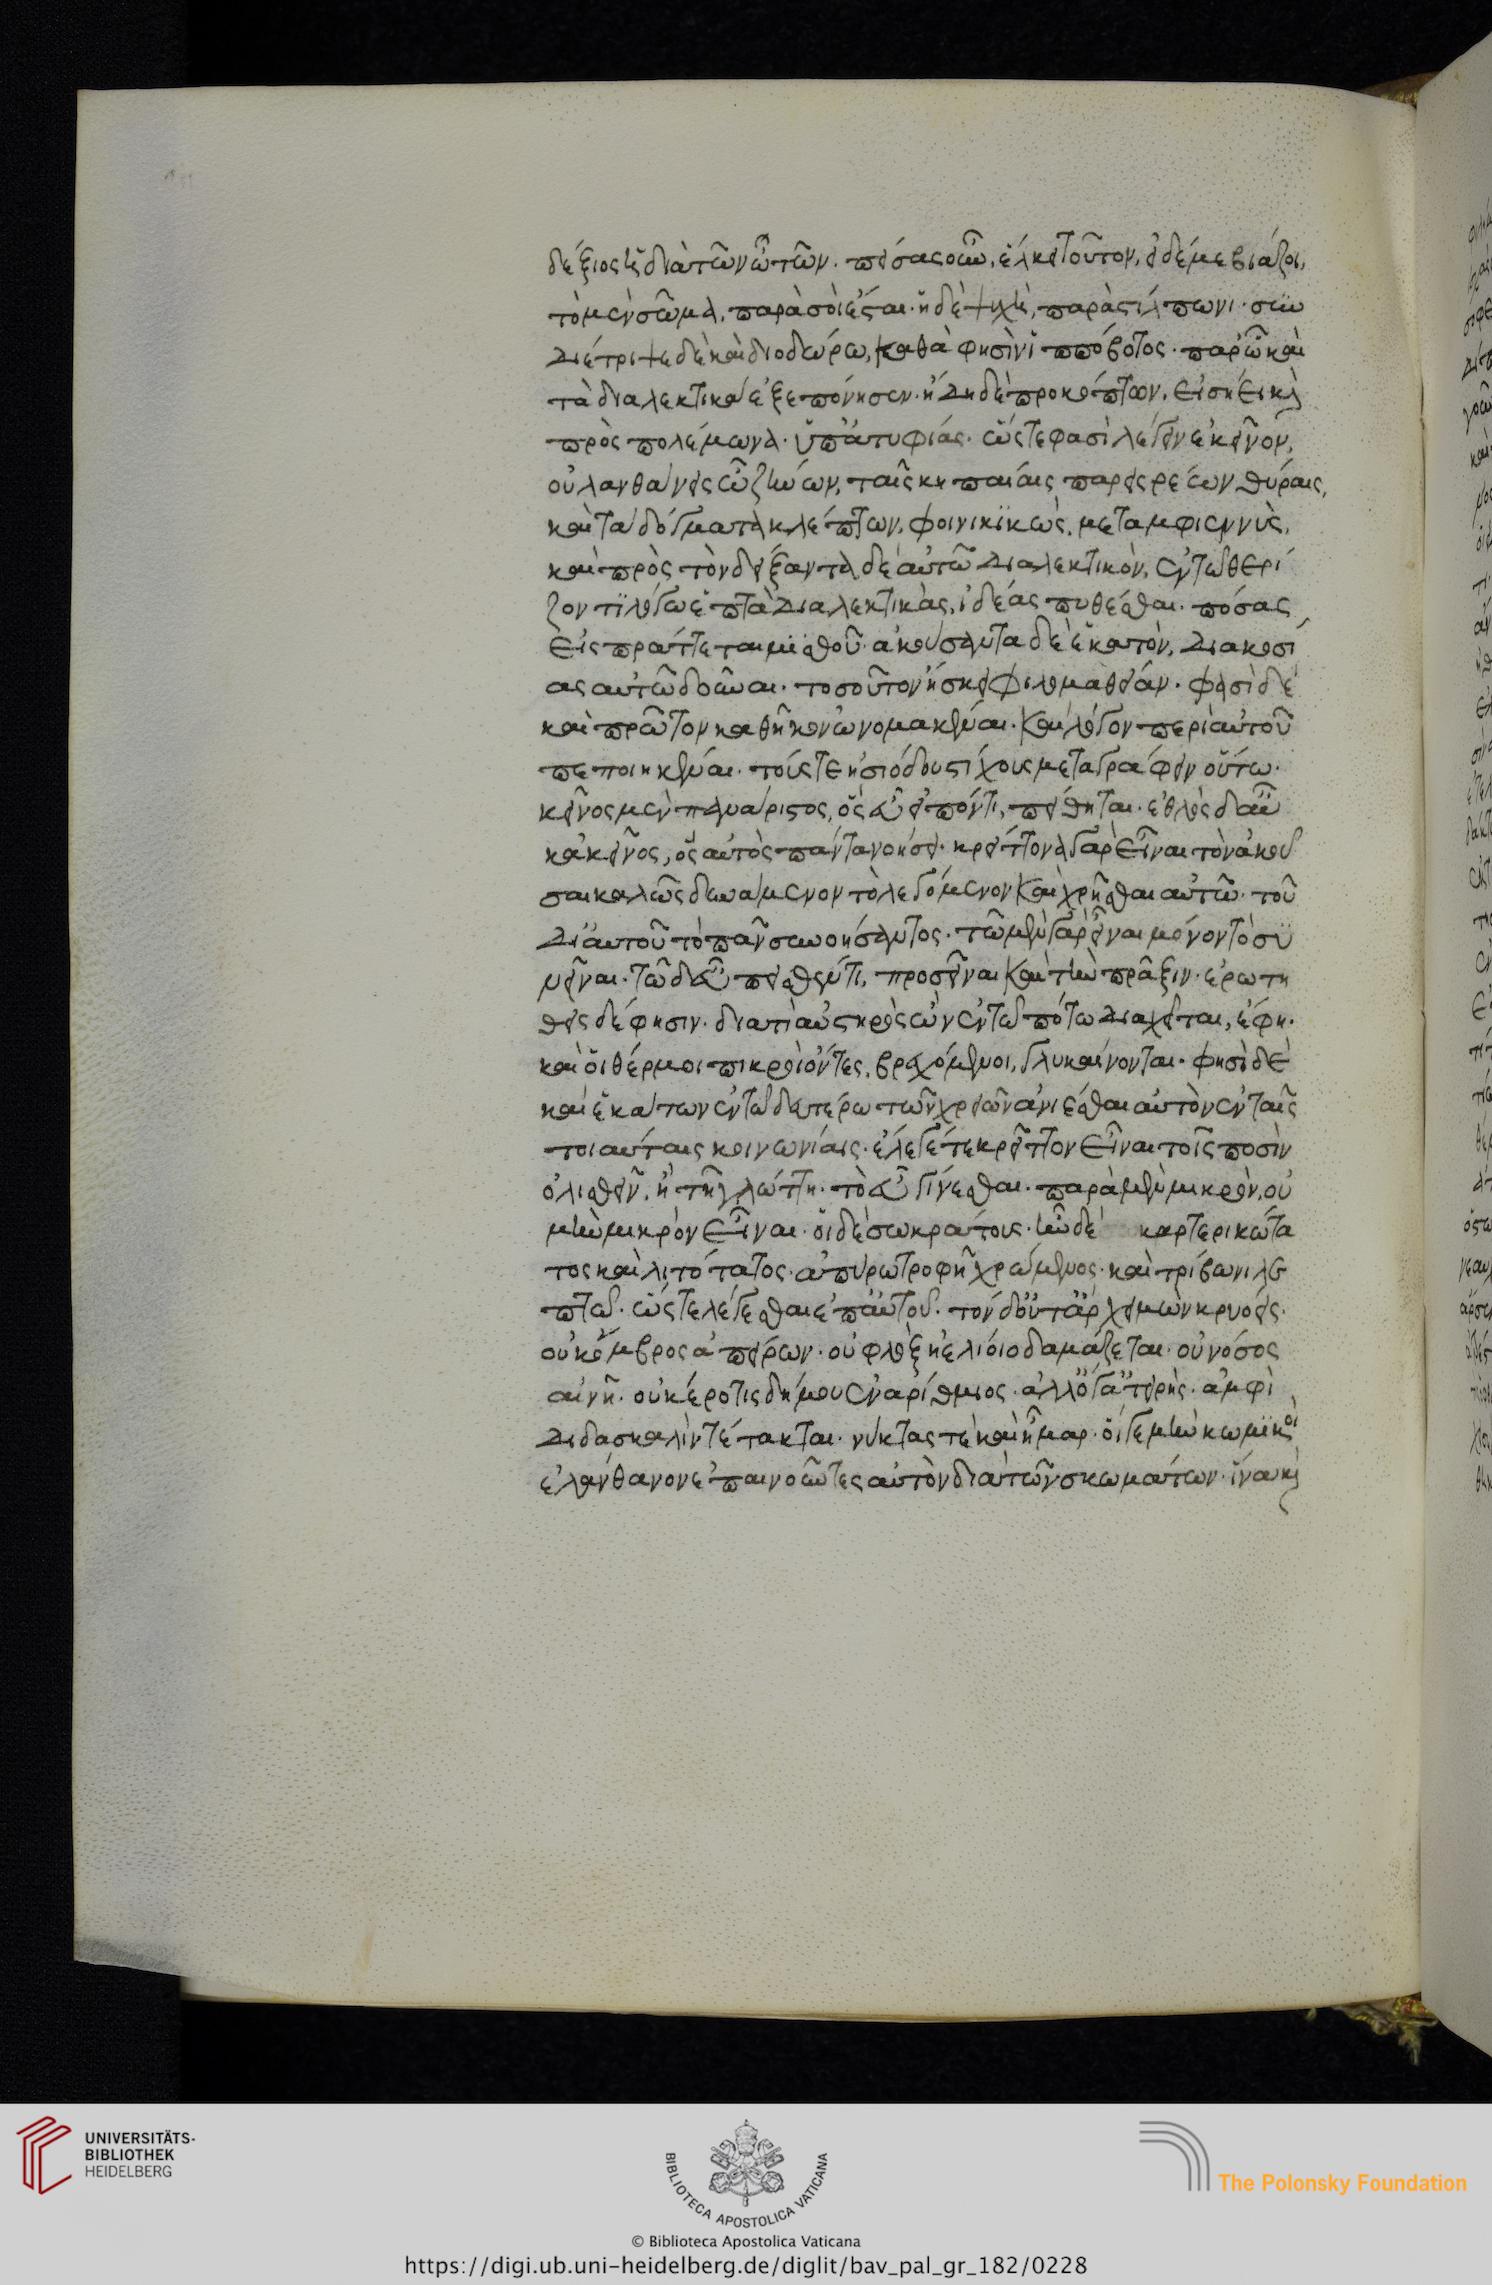 δέξιος ἡ διὰ τῶν ὤτων. πείσας οὖν, ἕλκε τοῦτον, εἰ δέ με βιάζοι,
τὸ μὲν σῶμα, παρὰ σοὶ ἔσται. ἡ δὲ ψυχὴ, παρὰ στίλπωνι. συν
διέτριψε δὲ καὶ διοδώρω, καθά φησὶν ἱππόβοτος. παρ' ᾧ καὶ
τὰ διαλεκτικὰ ἐξεπόνησεν. ἤδη δὲ προκόπτων, εἰσήει καὶ
πρὸς πολέμωνα. ὑπ' ἀτυφίας. ὥστε φασὶ λέγειν ἐκεῖνον,
οὐ λανθάνεις ὦ ζήνων, ταῖς κηπαίαις παρεισρέων θύραις,
καὶ τὰ δόγματα κλέπτων, φοινικικῶς, μεταμφιεννὺς,
καὶ πρὸς τὸν δείξαντα δὲ αὐτῶ διαλεκτικὸν, ἐν τῶ θερί
ζοντι λόγω ἑπτὰ διαλεκτικὰς, ἰδέας πυθέσθαι. πόσας
εἰσπράττεται μισθοῦ. ἀκούσαντα δὲ ἑκατὸν, διακοσί
ας αὐτῶ δοῦναι. τοσοῦτον ἤσκει φιλομάθειαν. φασὶ δὲ
καὶ πρῶτον καθῆκον ὠνομακέναι. καὶ λόγον περὶ αὐτοῦ
πεποιηκέναι. τούς τε ἡσιόδου στίχους μεταγράφειν οὕτω.
κεῖνος μὲν πανάριστος, ὃς εὖ εἰπόντι, πείθηται. ἐσθλὸς δ' αὖ
κἀκεῖνος, ὃς αὐτὸς πάντα νοήσει. κρείττονα γὰρ εἶναι τὸν ἀκοῦ
σαι καλῶς δυνάμενον τὸ λεγόμενον καὶ χρῆσθαι αὐτῶ. τοῦ
δι' αὐτοῦ τὸ πᾶν συνοήσαντος. τῶ μὲν γὰρ εἶναι μόνον τὸ συ
νεῖναι. τῶ δ' εὖ πεισθέντι, προσεῖναι καὶ τὴν πρᾶξιν. ἐρωτη
θεὶς δέ φησιν. διατί αὐστηρὸς ὢν ἐν τῶ πότω διαχεῖται, ἔφη.
καὶ οἱ θέρμοι πικροὶ ὄντες, βρεχόμενοι, γλυκαίνονται. φησὶ δὲ
καὶ ἑκάτων ἐν τῶ δευτέρω τῶν χρειῶν ἀνίεσθαι αὐτὸν ἐν ταῖς
τοιαύταις κοινωνίαις. ἔλεγέ τε κρεῖττον εἶναι τοῖς ποσὶν
ὀλισθεῖν, ἢ τῆ γλώττη. τὸ εὖ γίνεσθαι. παρὰ μὲν μικρὸν, οὐ
μὴν μικρὸν εἶναι. οἱ δὲ σωκράτους. ἦν δὲ καρτερικώτα
τος καὶ λιτότατος. ἀπύρω τροφῆ χρώμενος. καὶ τρίβωνι λε
πτῶ. ὥστε λέγεσθαι ἐπ' αὐτοῦ. τόν δ' οὔτ' ἂρ χειμὼν κρυόεις.
οὐκ ὄμβρος ἀπείρων. οὐ φλὸξ ἠελίοιο δαμάζεται. οὐ νόσος
αἰνῆ. οὐκ ἔροτις δήμου ἐναρίθμιος. ἀλλ' ὅγ' ἀτειρὴς. ἀμφὶ
διδασκαλὶην τέτακται. νύκτας τὲ καὶ ἦμαρ. οἵ γε μὴν κωμϊκοὶ
ἐλάνθανον ἐπαινοῦντες αὐτὸν διὰ τῶν σκωμάτων. ἵνα καὶ
UNIVERSITÄTS-
BIBLIOTHEK
HEIDELBERG
BIBLIOTECA APOSTOLICA VATICANA
The Polonsky Foundation
© Biblioteca Apostolica Vaticana
https://digi.ub.uni-heidelberg.de/diglit/bav_pal_gr_182/0228